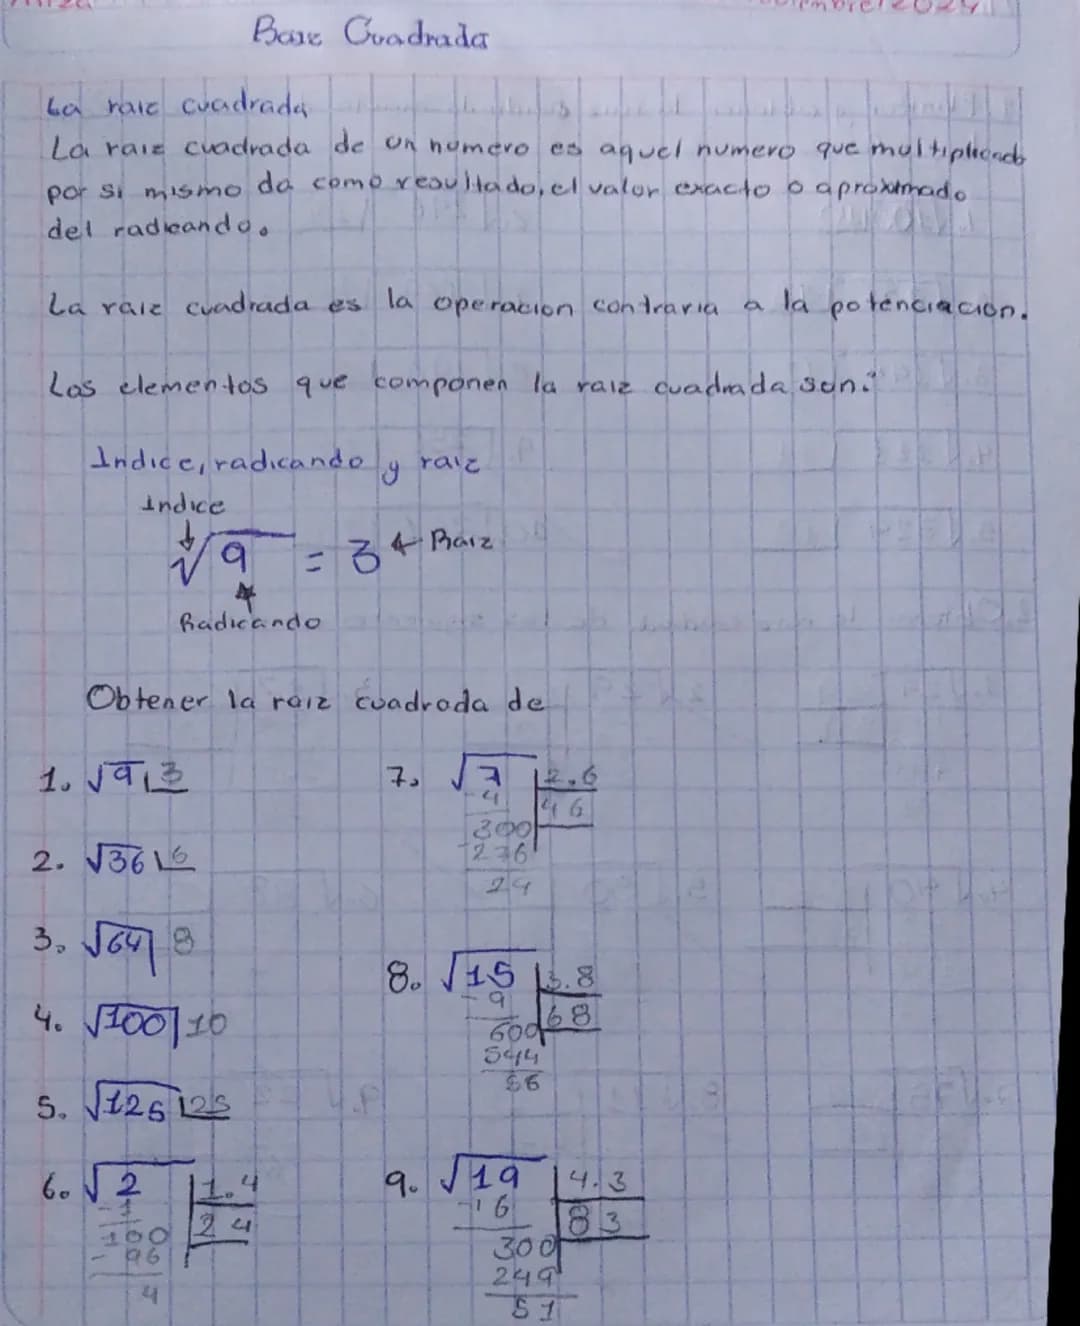 Base Cuadrada
La raiz cuadrada
La raiz cuadrada de un numero es aquel numero que multiplicado
por si mismo da como resultado, el valor exacto o aproximado
del radicando.
La raiz cuadrada es la operacion contraria a la potenciacion.
Los elementos que componen la raiz cuadrada son:
Indice, radicando y raiz
Indice
√9 = 3 ← Raiz
Radicando
Obtener la raiz cuadrada de
1. √9 3
2. √36 6
3. √64 8
4. √100 10
5. √125 25
6. √2 1.4
-1 24
100
-96
4
7. √7 2.6
-4 46
300
-276
24
8. √15 3.8
-9 68
600
544
56
9. √19 4.3
-16 83
300
249
51